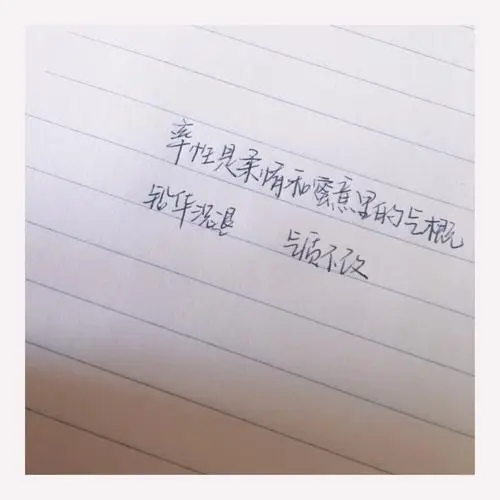 率性是柔情和蜜意里的气概
铅华洗退 气质不改